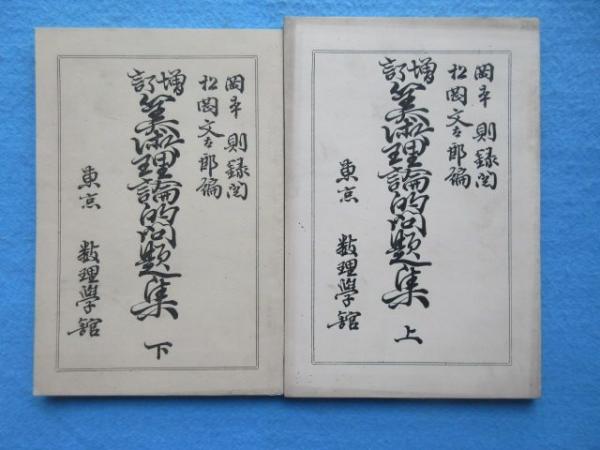 岡本 則録閲
松岡文太郎編
増訂
筭術理論的問題集 上
東京 数理學舘
岡本 則録閲
松岡文太郎編
増訂
筭術理論的問題集 下
東京 数理學舘